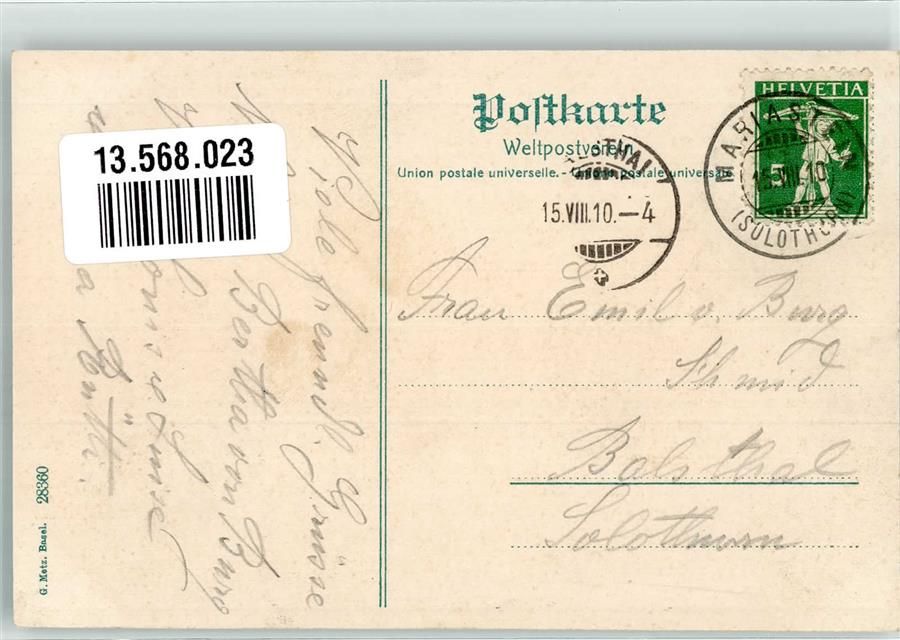 13.568.023
Postkarte
Weltpostverein.
Union postale universelle. - Unione postale universale
HELVETIA
5
MARIAST
15.VIII.10
(SOLOTHURN)
STHAL
15.VIII.10.–4
Frau Emil v. Burg
Schmid
Balsthal
Solothurn
Viele freundl. Grüsse
Bertha von Burg
Louis
Rütti.
G. Metz. Basel. 28360